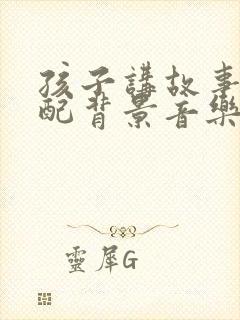 孩子講故事
配背景音樂
靈犀G